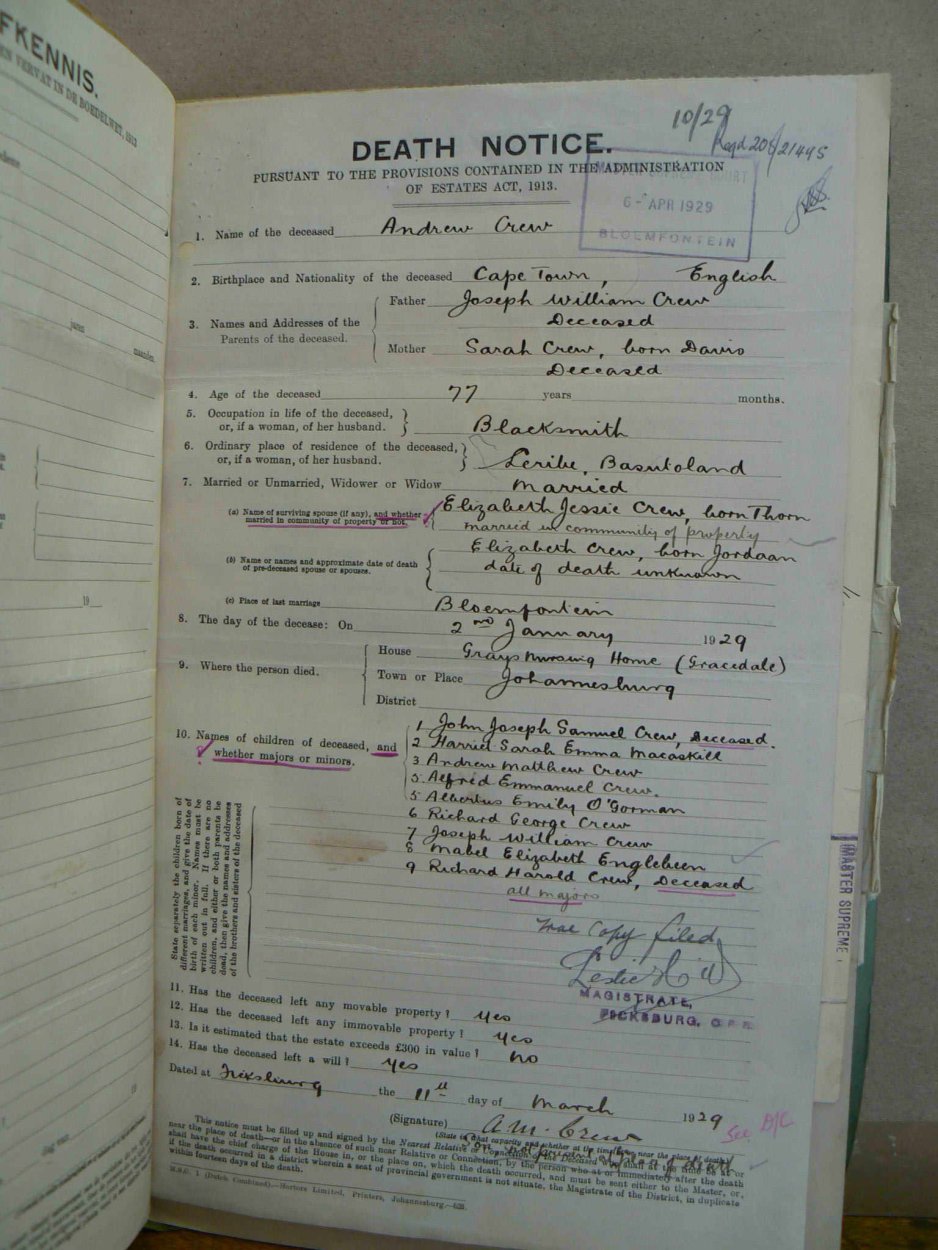 FKENNIS.
EN VERVAT IN DE BOEDELWET, 1913
jaren
maanden.
19
10/29
Regd 20/21445
DEATH NOTICE.
PURSUANT TO THE PROVISIONS CONTAINED IN THE ADMINISTRATION
OF ESTATES ACT, 1913.
6 - APR 1929
BLOEMFONTEIN
1. Name of the deceased Andrew Crew
2. Birthplace and Nationality of the deceased Cape Town, English
3. Names and Addresses of the Parents of the deceased.
Father Joseph William Crew
Deceased
Mother Sarah Crew, born Davis
Deceased
4. Age of the deceased 77 years months.
5. Occupation in life of the deceased,
or, if a woman, of her husband. Blacksmith
6. Ordinary place of residence of the deceased,
or, if a woman, of her husband. Leribe, Basutoland
7. Married or Unmarried, Widower or Widow Married
(a) Name of surviving spouse (if any), and whether
married in community of property or not.
Elizabeth Jessie Crew, born Thorn
married in community of property
(b) Name or names and approximate date of death
of pre-deceased spouse or spouses.
Elizabeth Crew, born Jordaan
date of death unknown
(c) Place of last marriage Bloemfontein
8. The day of the decease: On 2nd January 1929
9. Where the person died.
House Grays Nursing Home (Gracedale)
Town or Place Johannesburg
District
10. Names of children of deceased, and
whether majors or minors.
1 John Joseph Samuel Crew, Deceased.
2 Harriet Sarah Emma Macaskill
3 Andrew Matthew Crew
5. Alfred Emmanuel Crew.
5 Albertus Emily O'Gorman
6 Richard George Crew
7 Joseph William Crew
8 Mabel Elizabeth Englebeen
9 Richard Harold Crew, Deceased
all majors
State separately the children born of
different marriages, and give the date of
birth of each minor. Names must be
written out in full. If there are no
children, and either or both parents be
dead, then give the names and addresses
of the brothers and sisters of the deceased
True copy filed
MAGISTRATE,
FICKSBURG, O.F.S.
MASTER SUPREME
11. Has the deceased left any movable property? yes
12. Has the deceased left any immovable property? yes
13. Is it estimated that the estate exceeds £300 in value? no
14. Has the deceased left a will? yes
Dated at Ficksburg the 11th day of March 1929
(Signature) A.M. Crew
See B/C
(State in what capacity and whether at the time in or near the place of death)
Son not present at time of death
This notice must be filled up and signed by the Nearest Relative or Connection of the Deceased who shall at the time be at or
near the place of death—or in the absence of such near Relative or Connection, by the person who at or immediately after the death
shall have the chief charge of the House in, or the place on, which the death occurred, and must be sent either to the Master, or,
if the death occurred in a district wherein a seat of provincial government is not situate, the Magistrate of the District, in duplicate
within fourteen days of the death.
(Dutch Combined).—Hortors Limited, Printers, Johannesburg.